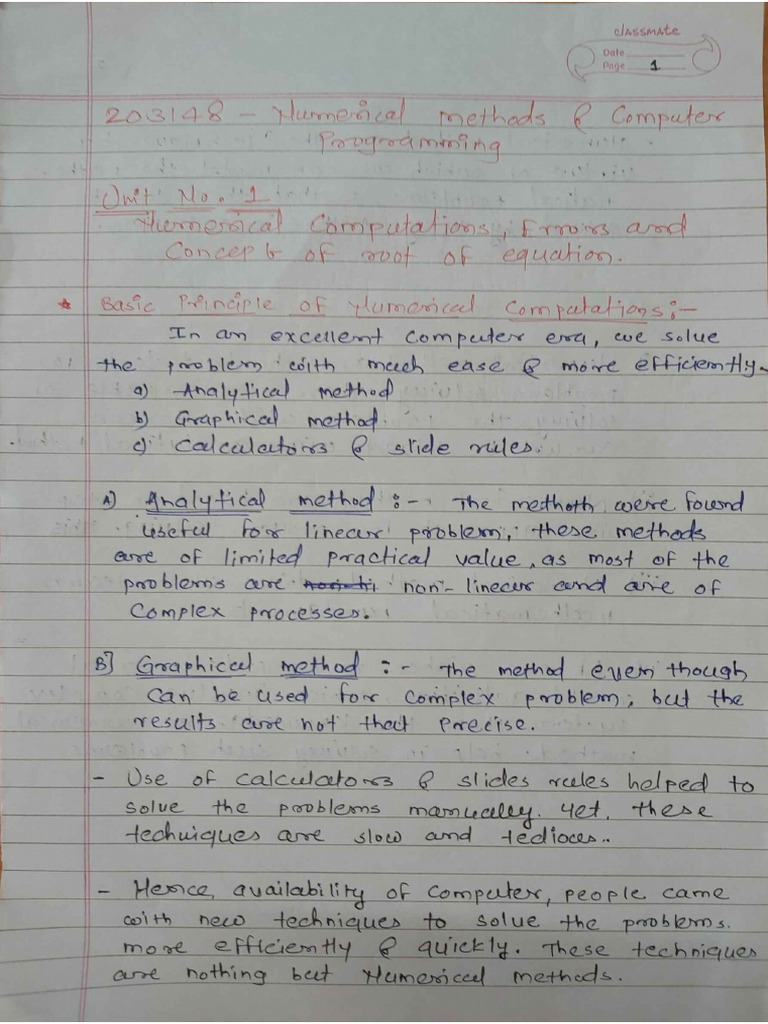 classmate
Date
Page 1
203148 - Numerical methods & Computer
Programming
Unit No. 1
Numerical Computations, Errors and
Concept of root of equation.
* Basic Principle of Numerical Computations :-
In an excellent computer era, we solve
the problem with much ease & more efficiently.
a) Analytical method
b) Graphical method.
c) Calculators & slide rules.
A) Analytical method :- The methoth were found
useful for linear problem, these methods
are of limited practical value, as most of the
problems are non-linear and are of
complex processes.
B] Graphical method :- The method even though
can be used for complex problem, but the
results are not that precise.
- Use of calculators & slides rules helped to
solve the problems manually. Yet, these
techniques are slow and tedioces..
- Hence, availability of computer, people came
with new techniques to solve the problems.
more efficiently & quickly. These techniques
are nothing but Numerical methods.